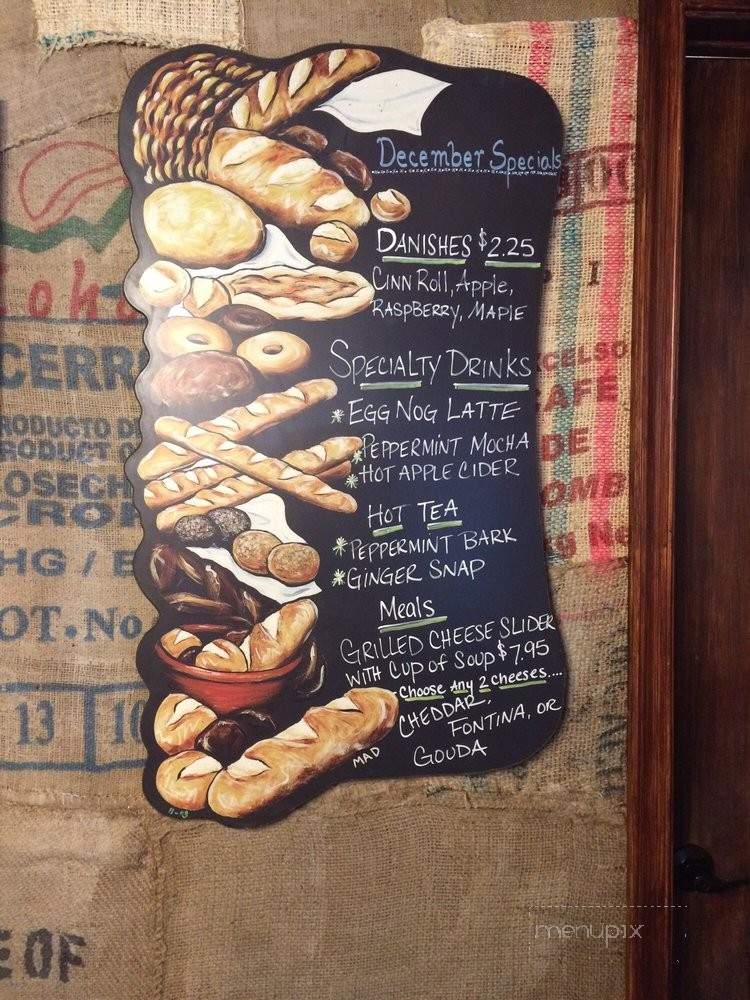 December Specials
DANISHES $2.25
CINN ROLL, APPLE,
RASPBERRY, MAPLE
SPECIALTY DRINKS
* EGG NOG LATTE
* PEPPERMINT MOCHA
* HOT APPLE CIDER
HOT TEA
* PEPPERMINT BARK
* GINGER SNAP
Meals
GRILLED CHEESE SLIDER
WITH CUP OF SOUP $7.95
-Choose Any 2 cheeses....
CHEDDAR,
FONTINA, OR
GOUDA
MAD
CERR
PRODUCTO DE
PRODUCT O
COSECH
CROP
HG / E
OT.No
13 10
E OF
EXCELSO
CAFÉ
DE
menupix